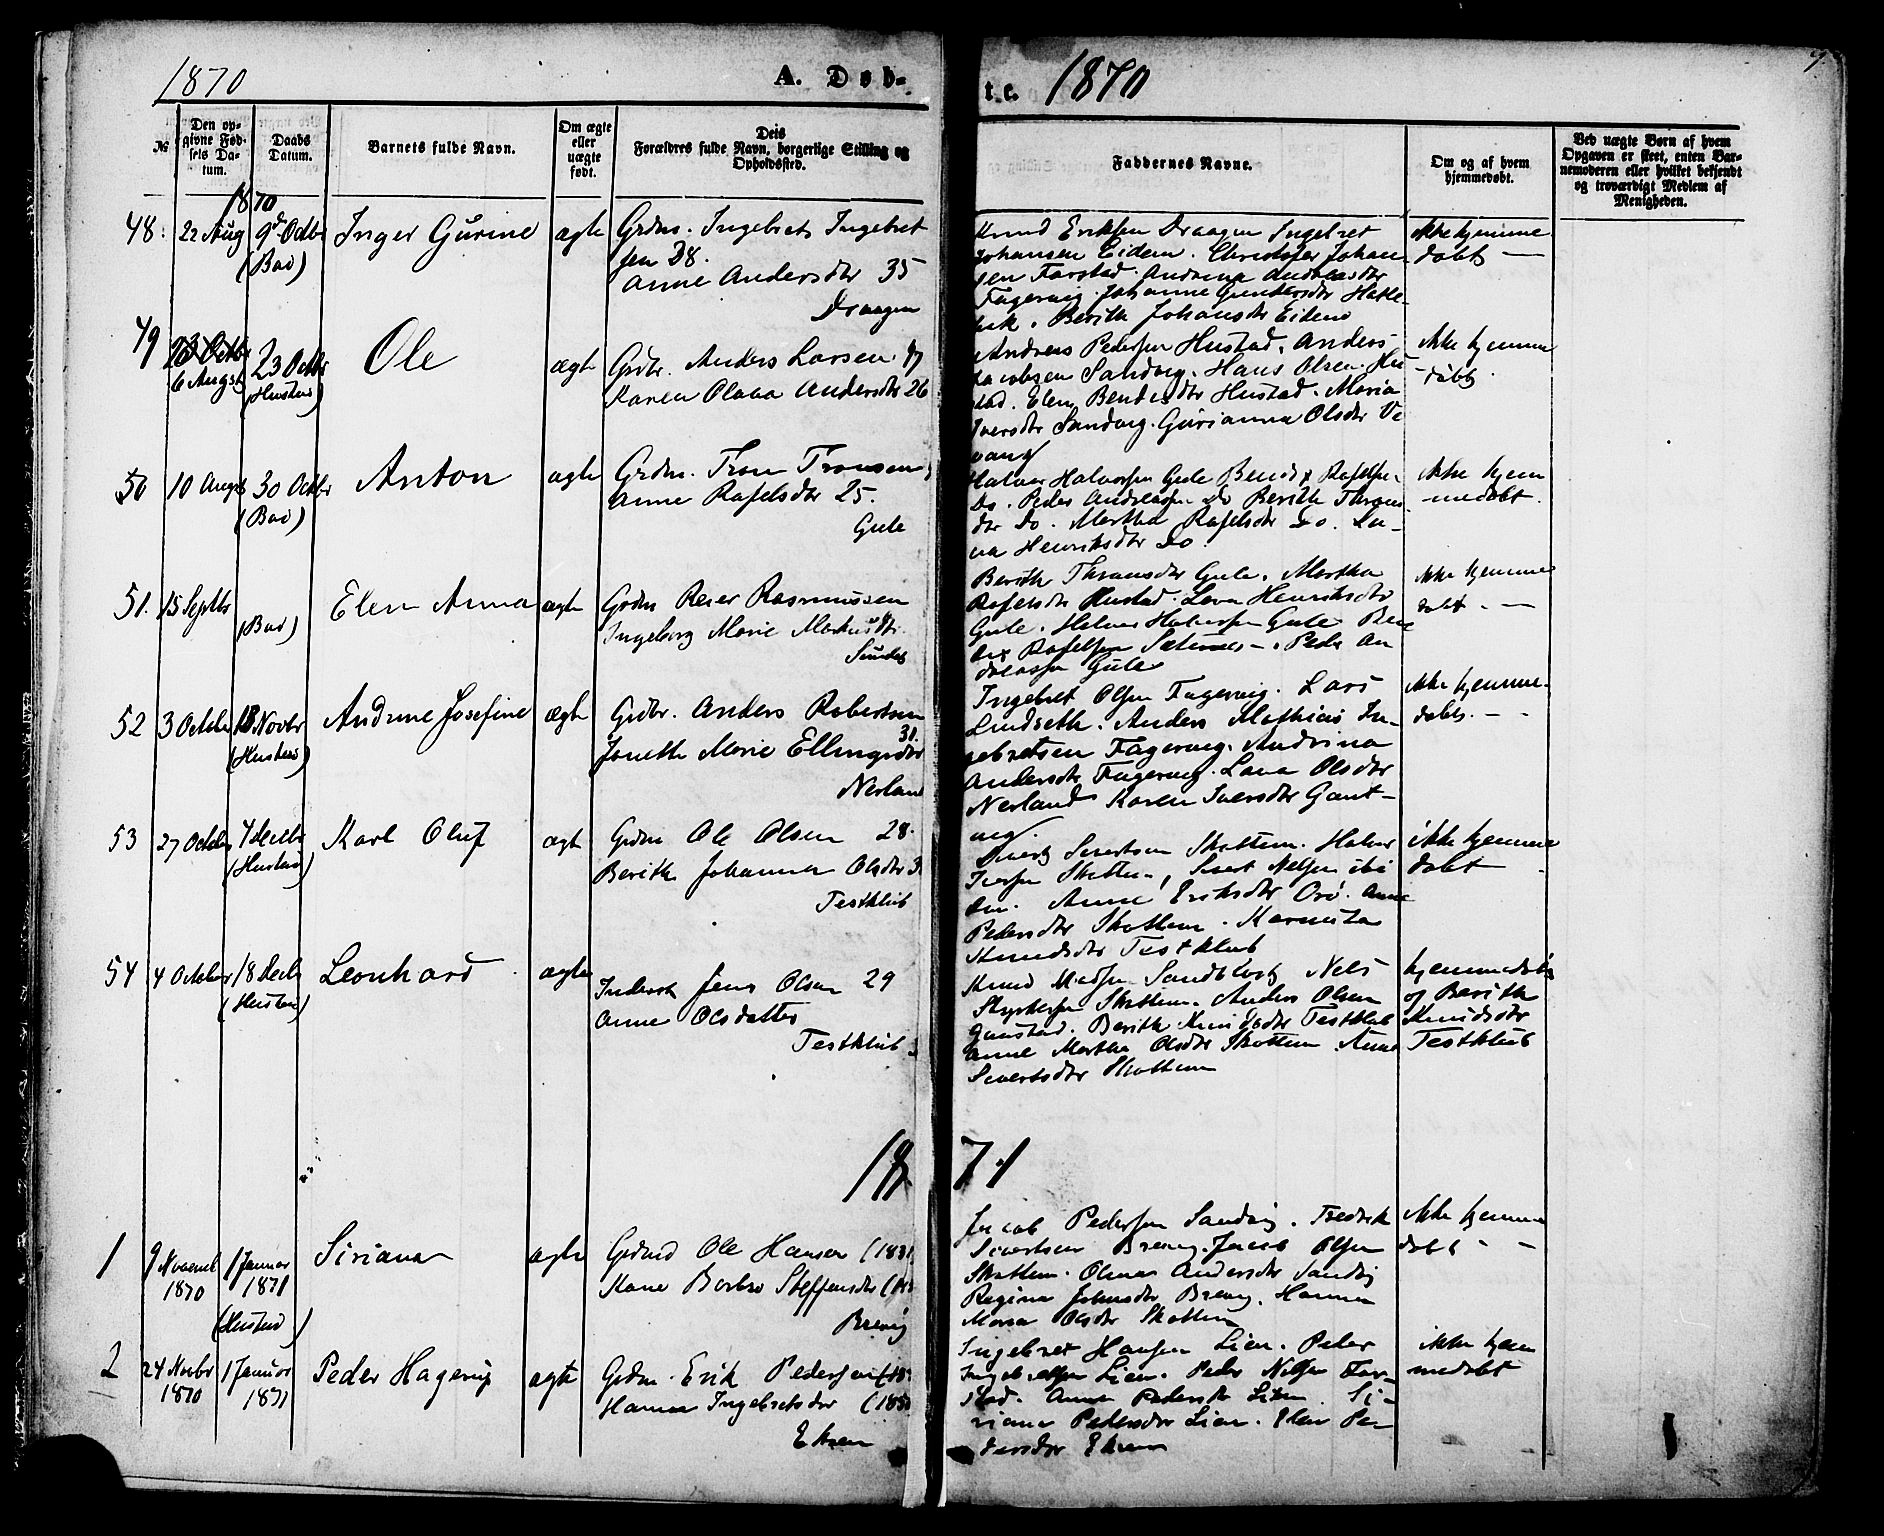 1870
A. Døb-
te. 1870
7.
№
Den op-
givne Fød-
sels Da-
tum.
Daabs
Datum.
Barnets fulde Navn.
Om ægte
eller
uægte
født.
Deis
Forældres fulde Navn, borgerlige Stilling og
Opholdssted.
Faddernes Navne.
Om og af hvem
hjemmedøbt.
Ved uægte Børn af hvem
Opgaven er skeet, enten Bar-
nemoderen eller hvilket bekjendt
og troværdigt Medlem af
Menigheden.
1870
48. 22 Aug 9d Octbr Inger Gurine ægte Grdm. Ingebret Ingebret
(Bud) sen 38.
Anne Andersdtr 35
Draagen
Knud Eriksen Draagen Ingebret
Johansen Eidem. Christofer Johan-
sen Farstad. Andrina Andreasdtr
Fagervig. Johanne Gundersdtr Hatle-
bak. Berith Johansdtr Eidem
ikke hjemme
døbt —
49 23 Octbr 23 Octbr Ole ægte Grdbr. Anders Larsen
6 Augst (Hustad) Karen Olava Andersdtr 26
Andreas Pedersen Hustad. Anders
Jacobsen Sandvig. Hans Olsen Hu
stad. Elen Bendesdtr Hustad. Maria
Iversdtr Sandvig. Gurianna Olsdtr Ve
vang
ikke hjemme
døbt.
50 10 Augst 30 Octbr Anton ægte Grdm. Tron Tronsen
(Bud) Anne Rafelsdtr 25.
Gule
Halvor Halvorsen Gule Bendix Rafelsen
Do. Peder Andreassen Do Berith Throns
dtr Do. Martha Rafelsdtr Do. La-
va Henriksdtr Do.
ikke hjem
medøbt.
51. 15 Septbr Elen Anna ægte Grdm Reier Rasmussen
(Bud) Ingeborg Marie Markusdtr.
Berith Thronsdtr Gule. Martha
Rafelsdtr Hustad. Lava Henriksdtr
Gule. Halvor Halvorsen Gule Ben
dix Rafelsen. Peder An
dreassen Gule
ikke hjemme
døbt. —
52 3 October 13 Novbr Andrine Josefine ægte Grdbr. Anders Robertsen
(Hustad) 31.
Joneth Marie Ellingsdtr
Nerland
Ingebret Olsen Fagervig. Lars
Lindseth. Anders Mathias In-
gebretsen Fagervig. Andrina
Andersdtr Fagervig. Lava Olsdtr
Nerland Karen Iversdtr Gaut-
vig.
ikke hjemme-
døbt. —
53 27 October 4 Decbr Karl Oluf ægte Grdm Ole Olsen 28.
(Hustad) Berith Johanna Olsdtr 3
Testklub
Sivert Sivertsen Skottem. Halvor
Iversen Skottem, Sivert Nelsen ibi
dm. Anne Eriksdtr Orø. Anne
Pedersdtr Skottem. Karnista
Knudsdtr Testklub
ikke hjemme
døbt
54 4 October 18 Decbr Leonhard ægte Inderst Jens Olsen 29
(Hustad) Anne Olsdatter
Testklub
Knud Madsen Sandblost Nels
Styrkersen Skottem. Anders Olsen
Gaustad. Berith Knudsdtr Testklub
Anne Martha Olsdtr Skottem. Anne
Sivertsdtr Skottem
hjemmedøbt
af Berith
Knudsdtr
Testklub
1871
1 9 Novemb 1 Januar Siriana ægte Grdmd Ole Hansen (1831
1870 1871 Kane Barbro Steffensdtr (18
(Hustad) Brevig
Jacob Pedersen Sandvig. Fredrik
Sivertsen Brevig. Jacob Olsen
Skottem. Olina Andersdtr Sandvig
Regina Johnsdtr Brevig. Hanna
Maria Olsdtr Skottem
ikke hjemme
døbt —
2 24 Novbr 1 Januar Peder Hagerup ægte Grdm. Erik Pedersen (18
1870 1871 Hanna Ingebretsdtr (185
Ekren
Ingebret Hansen Lien. Peder
Ingebretsen Lien. Peder Nilsen Far-
stad. Anne Pedersdtr Lien. Si-
riana Pedersdtr Lien. Elen Pe-
dersdtr Ekren
ikke hjem
medøbt